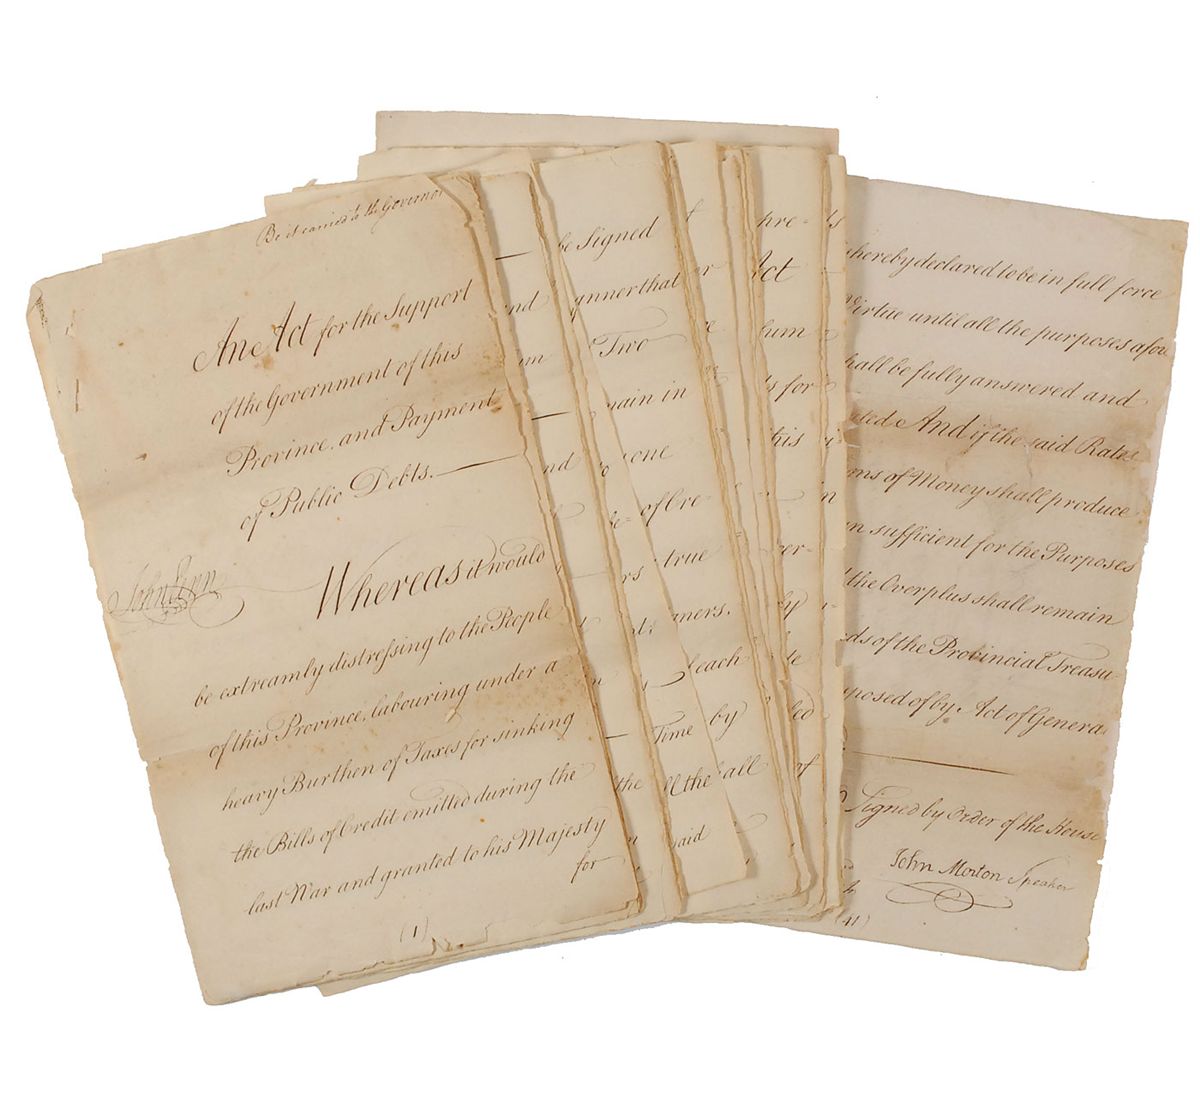 Be it carried to the Governor
An Act for the Support
of the Government of this
Province, and Payment
of Public Debts.
John Penn
Whereas it would
be extreamly distressing to the People
of this Province, labouring under a
heavy Burthen of Taxes for sinking
the Bills of Credit emitted during the
last War and granted to his Majesty
for
(1)
nd
nd
the
be Signed
anner that
Two
main in
one
of Cre=
true
ners.
each
Time by
ll the all
said
or
pre=
Act
hum
ds for
this
in
er=
by
te
led
of
hereby declared to be in full force
Virtue until all the purposes afore
shall be fully answered and
uted And if the said Rates
ms of Money shall produce
an sufficient for the Purposes
the Overplus shall remain
ds of the Provincial Treasu=
sposed of by Act of General
Signed by Order of the House
John Morton Speaker
(41)